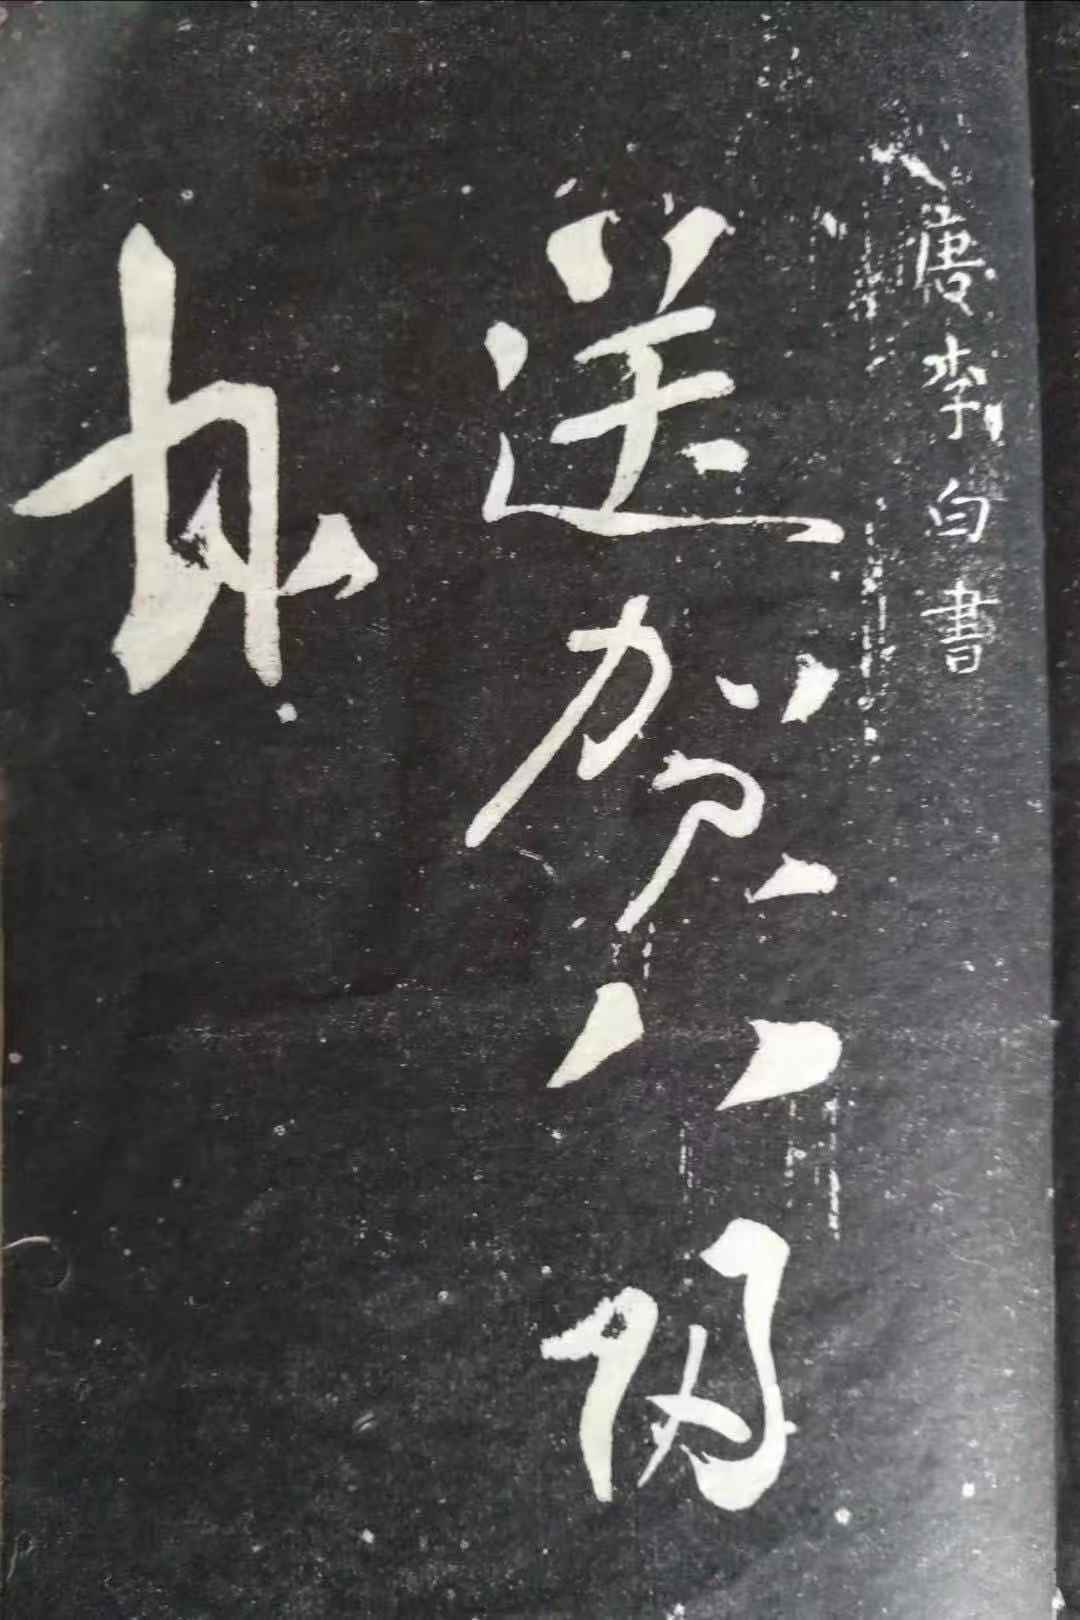 唐李白書
送賀八歸